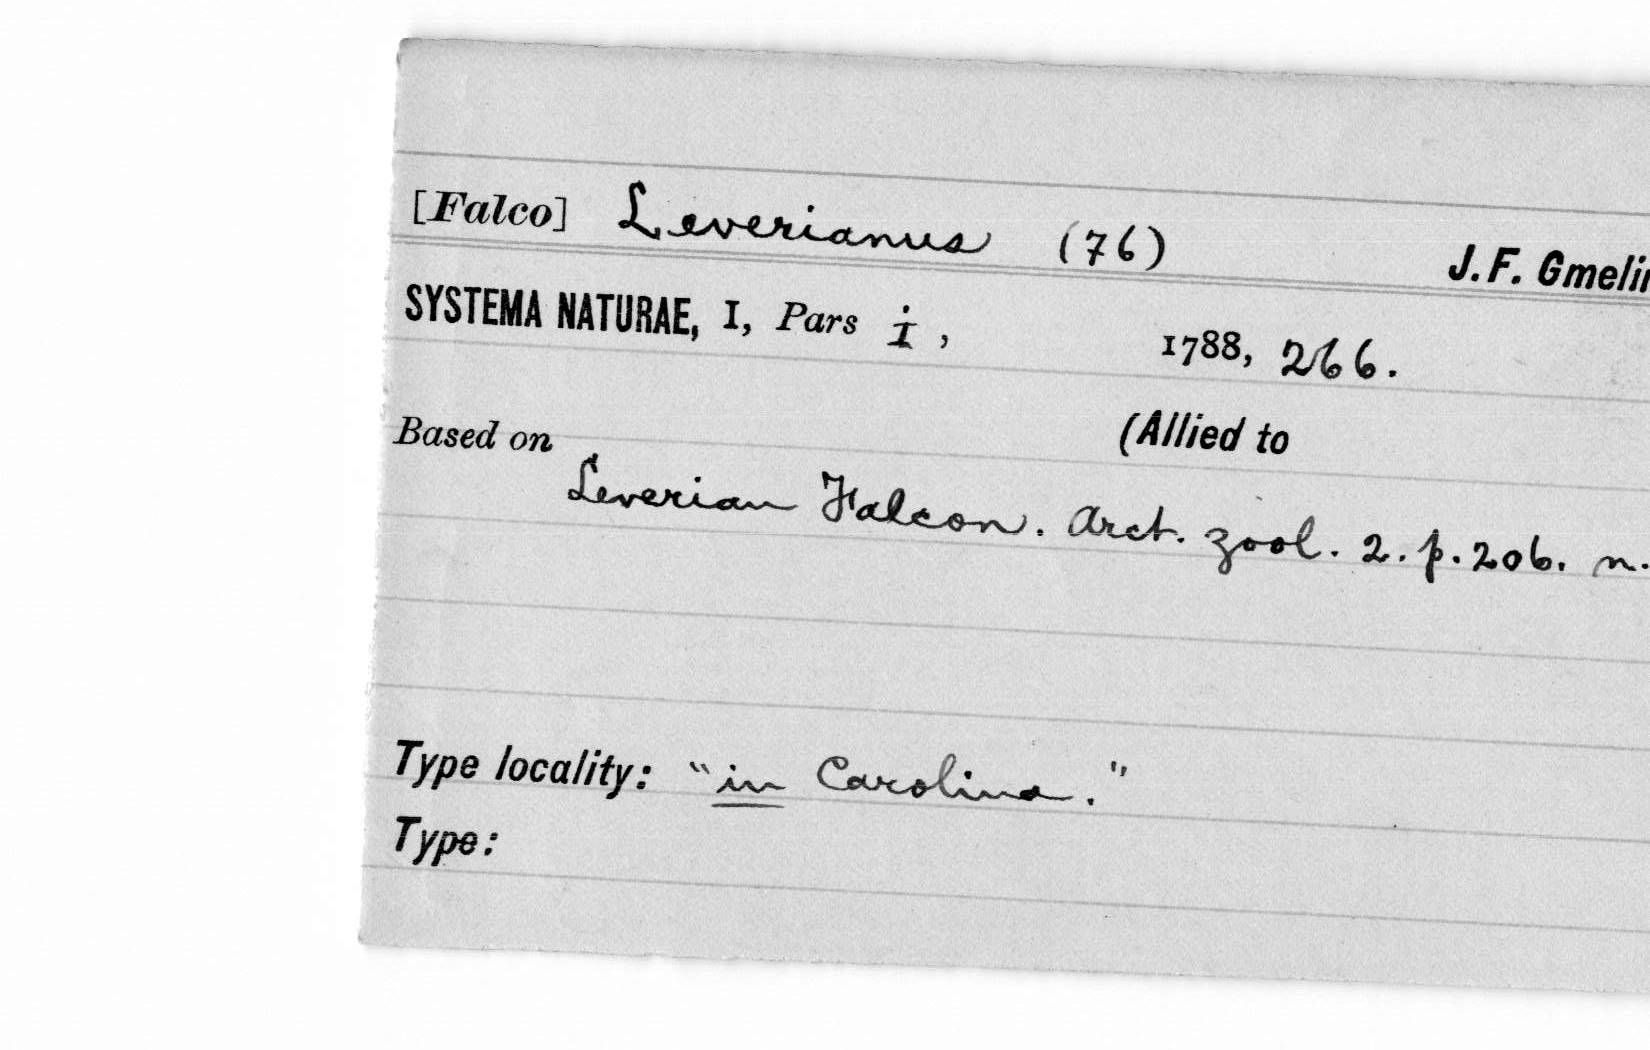 [Falco] Leverianus (76) J. F. Gmelin
SYSTEMA NATURAE, I, Pars i, 1788, 266.
Based on (Allied to
Leverian Falcon. Arct. zool. 2. p. 206. n.
Type locality: "in Carolina."
Type: